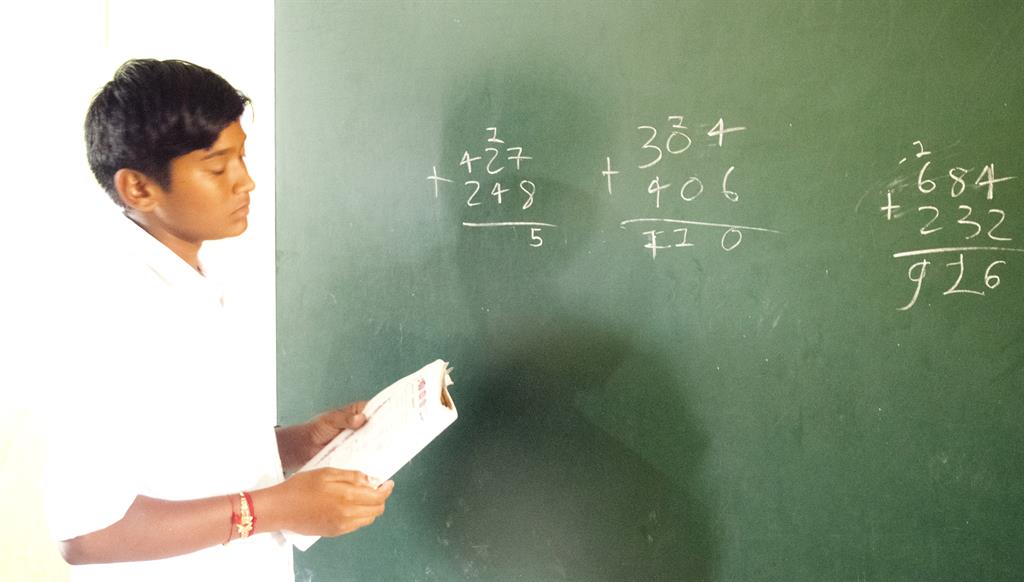 1
427
+ 248
5
1
304
+ 406
710
1
684
+ 232
916